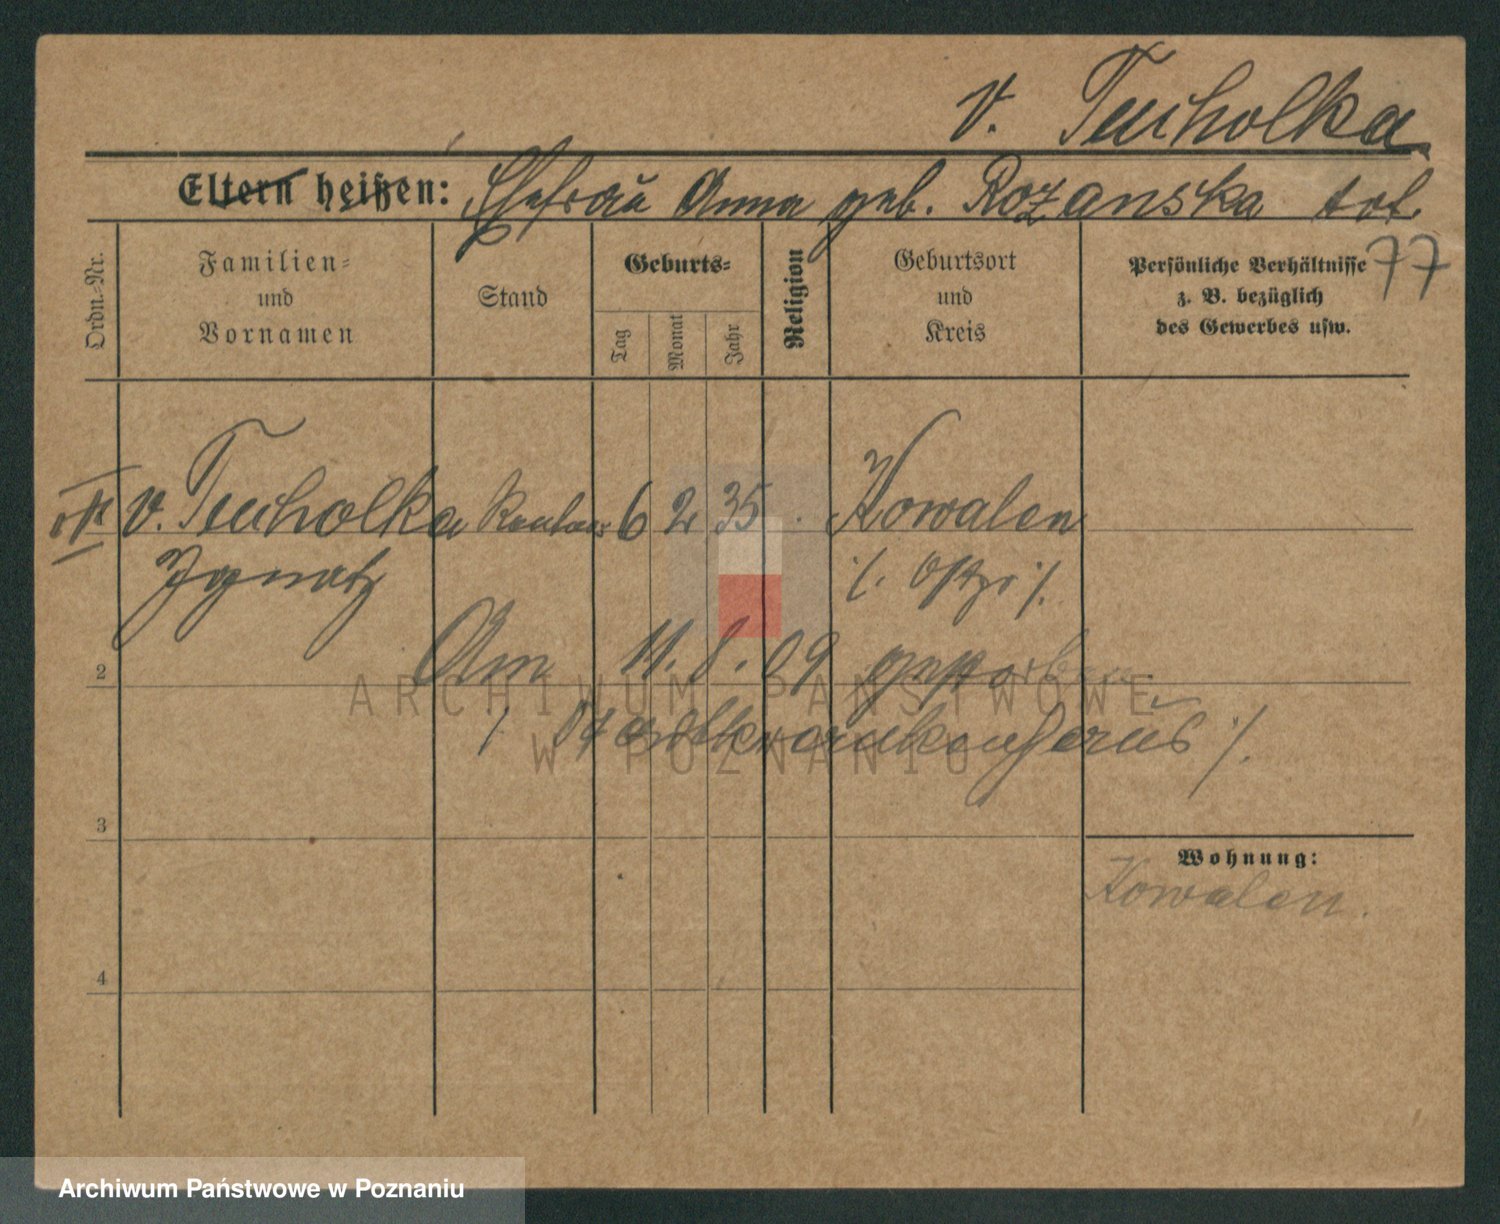 v. Tucholka
Eltern heißen: Ehefrau Anna geb. Rozanska tot.
77
Ordn.-Nr.
Familien-
und
Vornamen
Stand
Geburts-
Tag
Monat
Jahr
Religion
Geburtsort
und
Kreis
Persönliche Verhältnisse
z. B. bezüglich
des Gewerbes usw.
v. Tucholka Rentner 6 2 35 Kowalen
Ignatz ./. Ostpr ./.
Am 11. 8. 09 gestorben
2
./. Stadtkrankenhaus ./.
3
Wohnung:
Kowalen.
4
ARCHIWUM PAŃSTWOWE
W POZNANIU
Archiwum Państwowe w Poznaniu